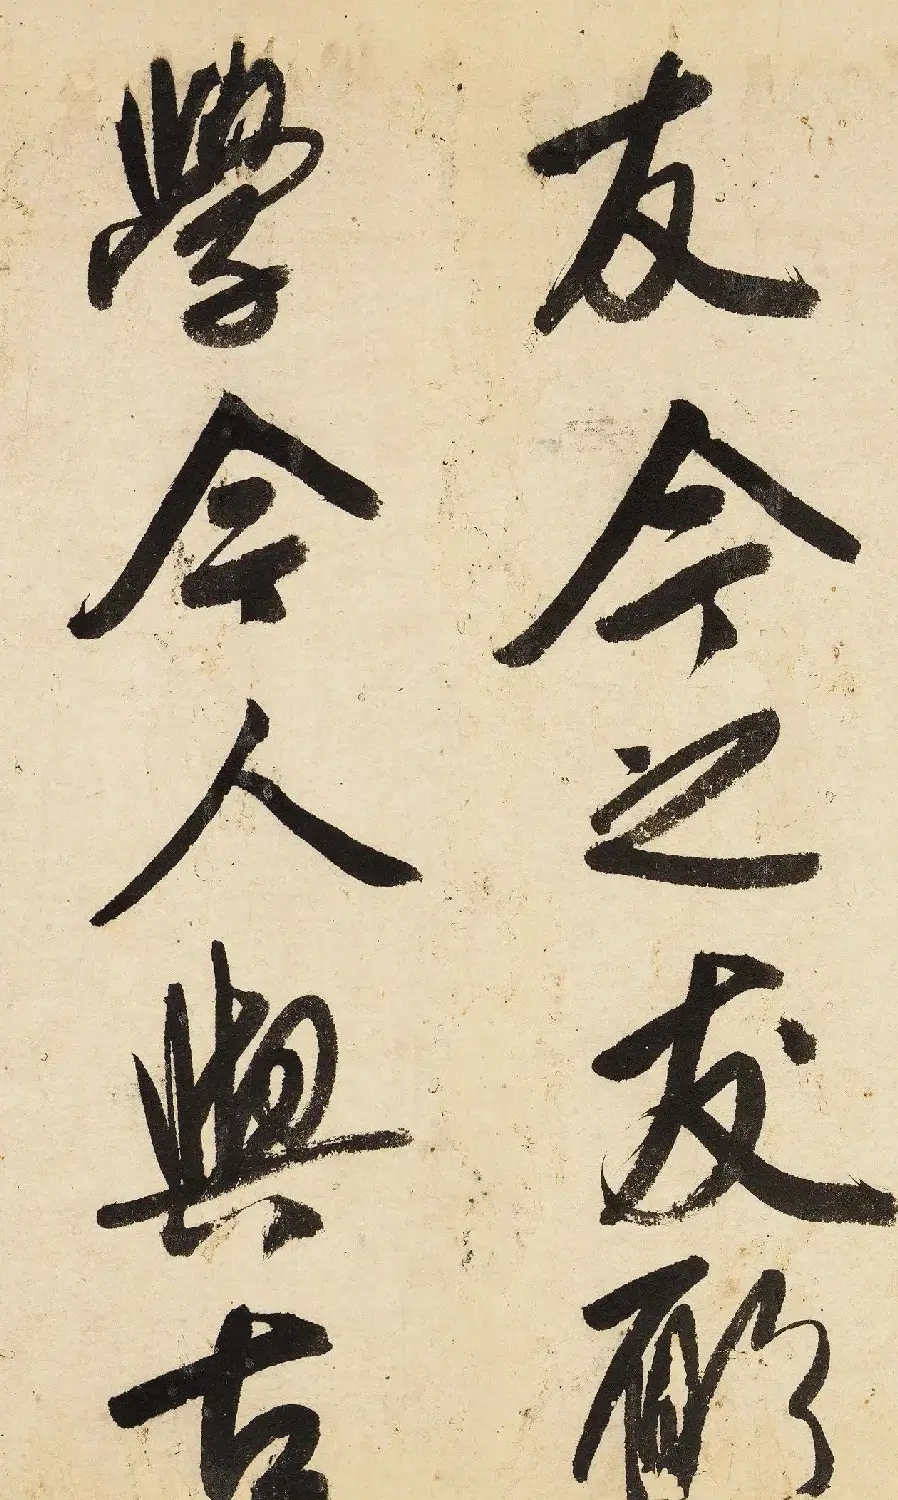 友今之友願
學今人與古